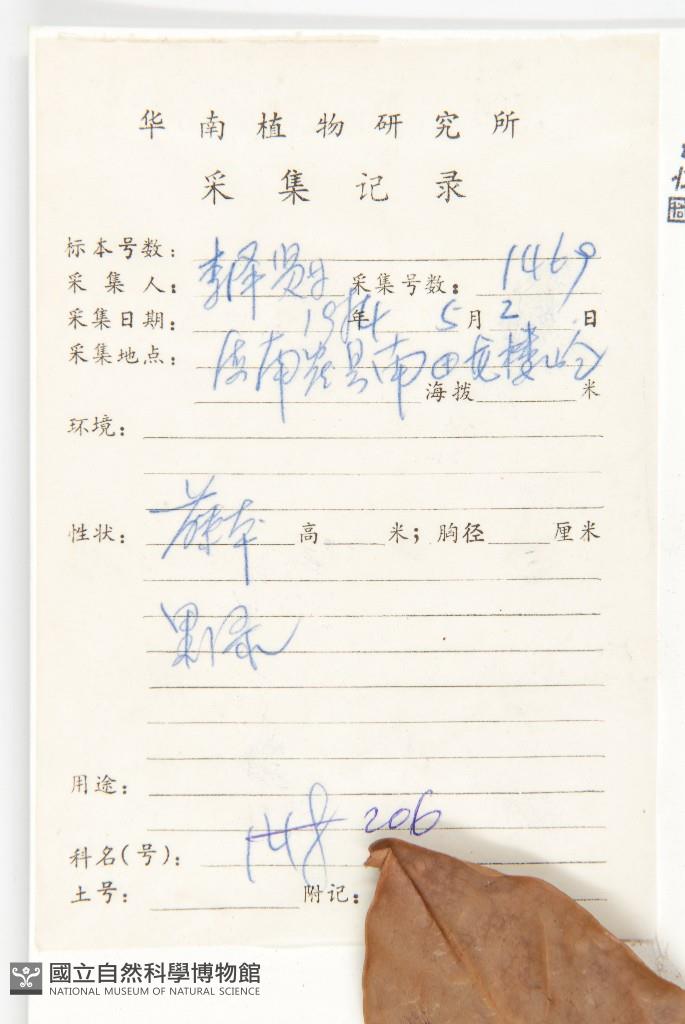 华南植物研究所
采集记录
标本号数：
采集人：李泽贤 采集号数：1469
采集日期：年 5月2日
采集地点：县南田
海拨 米
环境：
性状：藤本 高 米；胸径 厘米
果绿
用途：
206
科名(号)：
土号： 附记：
國立自然科學博物館
NATIONAL MUSEUM OF NATURAL SCIENCE